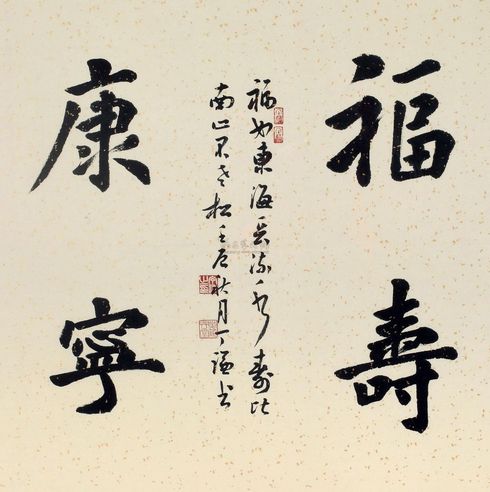 福壽
福如東海長流水壽比
南山不老松壬辰秋月丁謙书
康寧